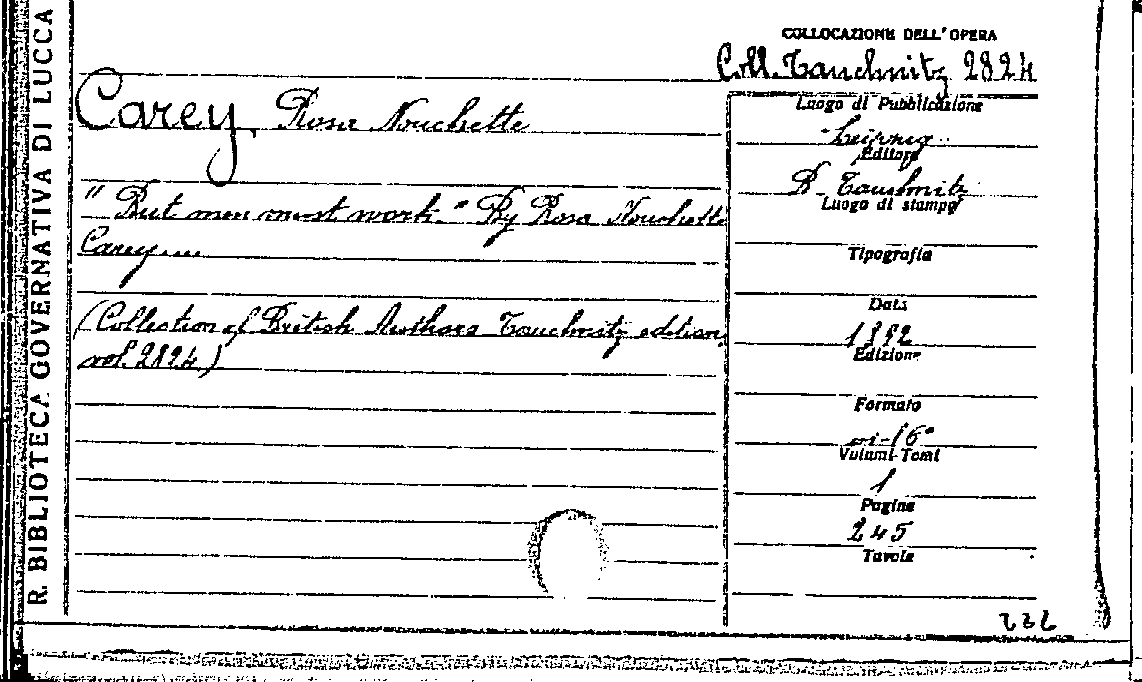 R. BIBLIOTECA GOVERNATIVA DI LUCCA
COLLOCAZIONE DELL'OPERA
Coll. Tauchnitz 2824
Carey, Rosa Nouchette
"But men must work." By Rosa Nouchette
Carey....
(Collection of British Authors Tauchnitz edition,
vol. 2824)
Luogo di Pubblicazione
Leipzig
Editore
B. Tauchnitz
Luogo di stampa
Tipografia
Data
1892
Edizione
Formato
in-16°
Volumi-Tomi
1
Pagine
245
Tavole